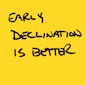 EARLY
DECLINATION
IS BETTER